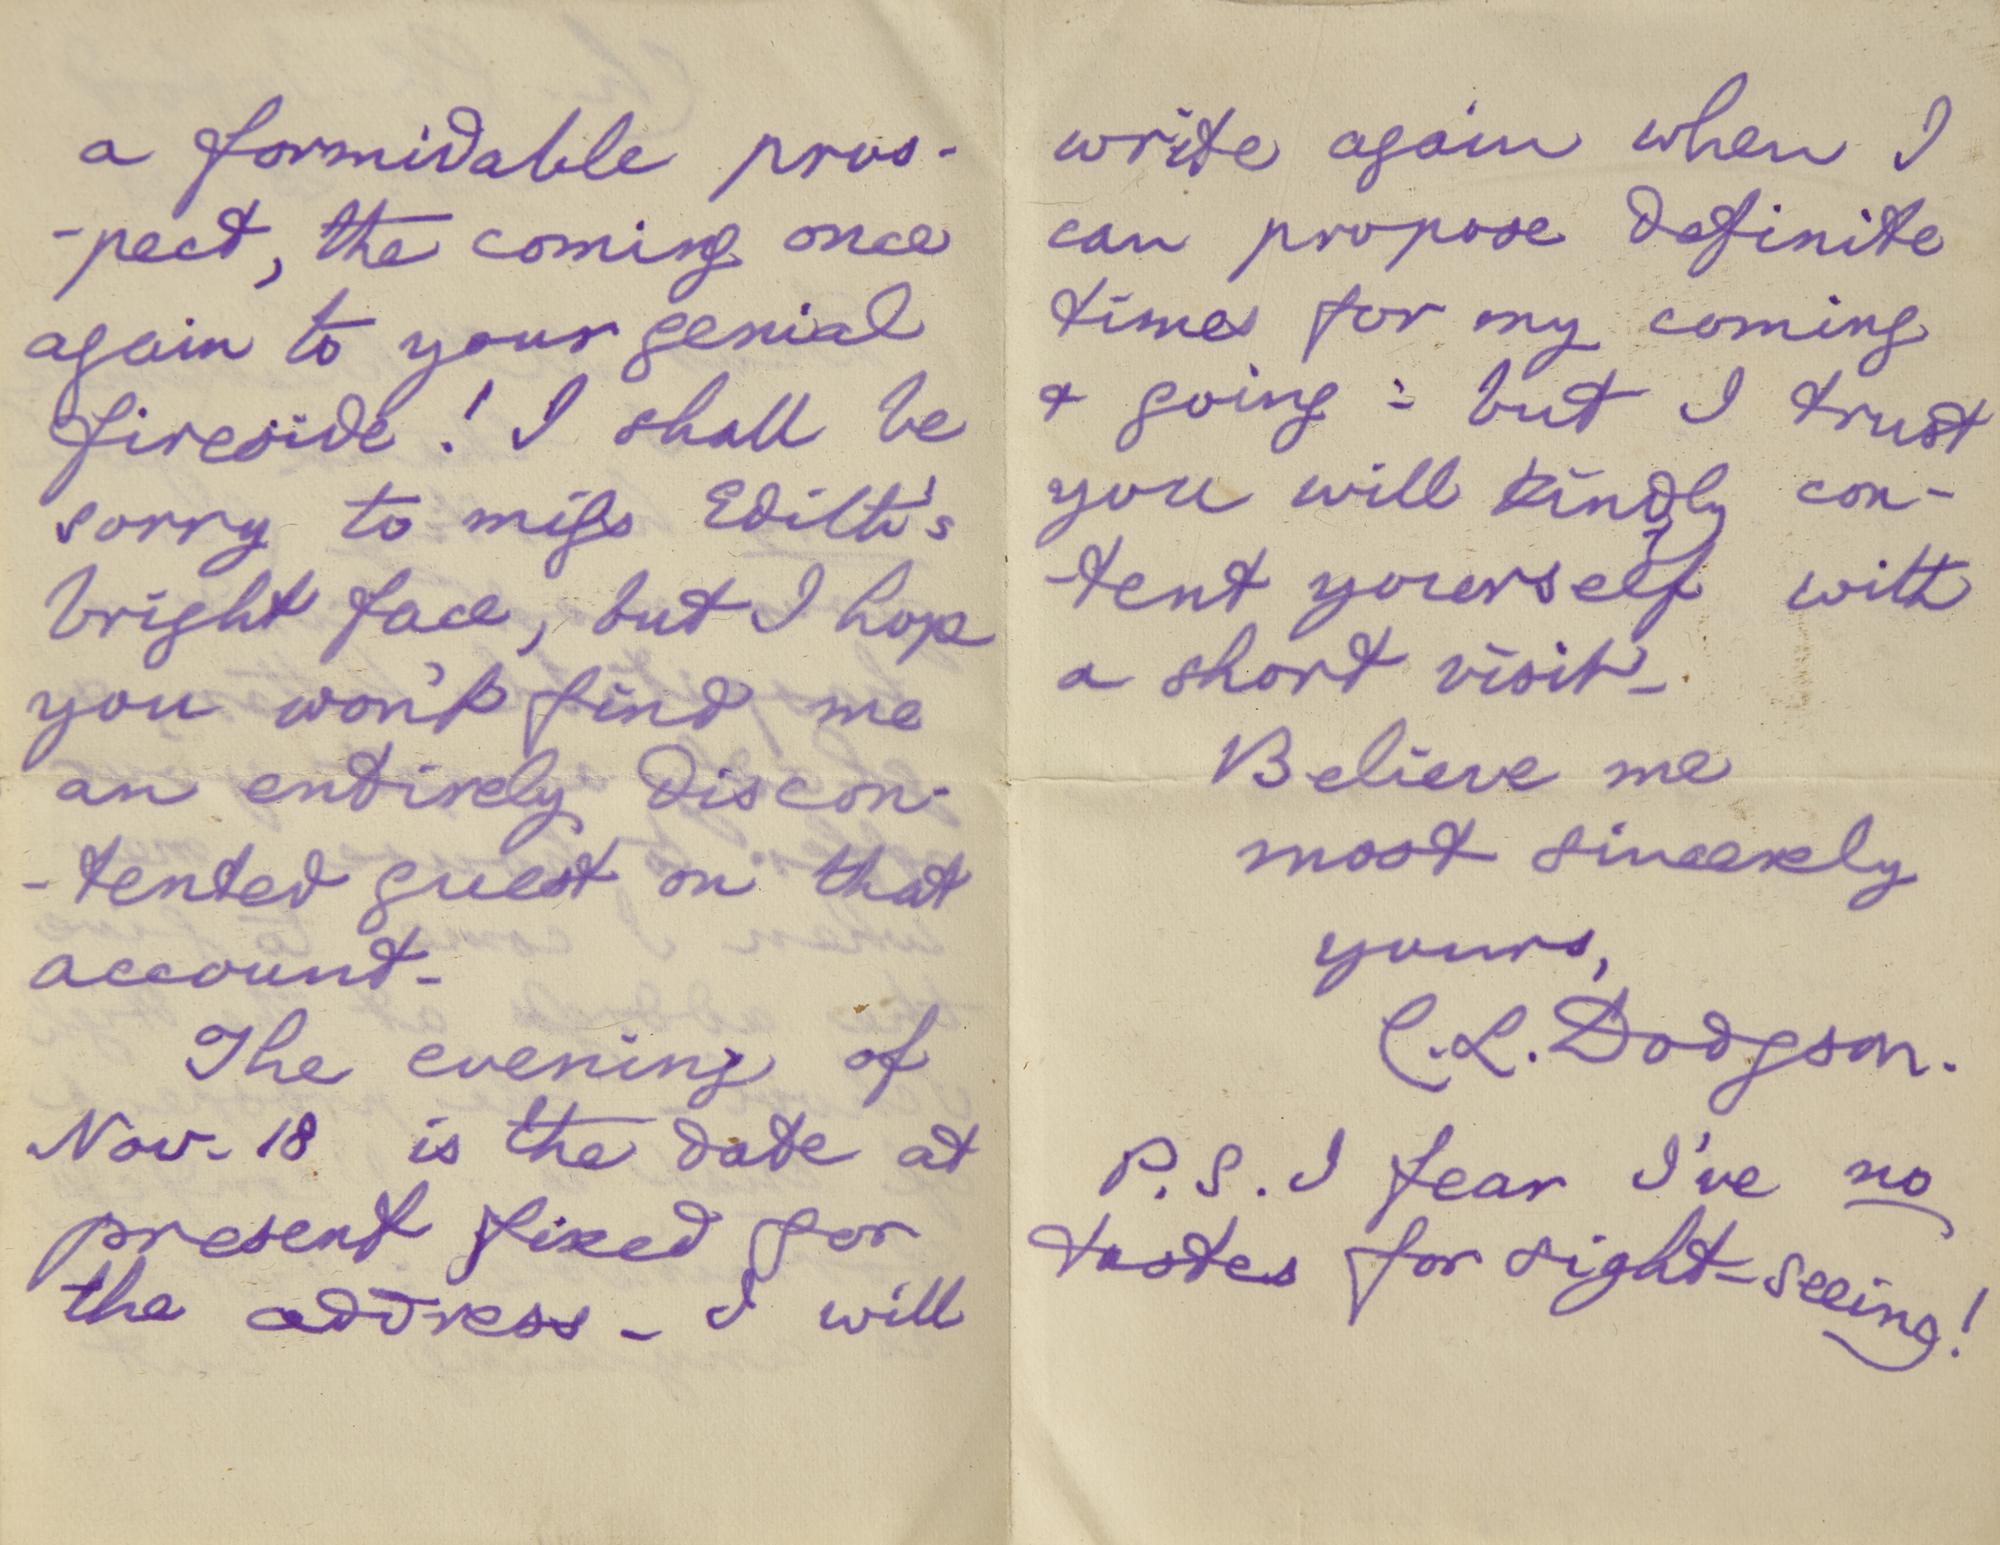 a formidable pros-
-pect, the coming once
again to your genial
fireside! I shall be
sorry to miss Edith's
bright face, but I hope
you won't find me
an entirely discon-
-tented guest on that
account.
The evening of
Nov. 18 is the date at
present fixed for
the address. I will
write again when I
can propose definite
times for my coming
& going: but I trust
you will kindly con-
-tent yourself with
a short visit.
Believe me
most sincerely
yours,
C. L. Dodgson.
P.S. I fear I've no
tastes for sight-seeing!